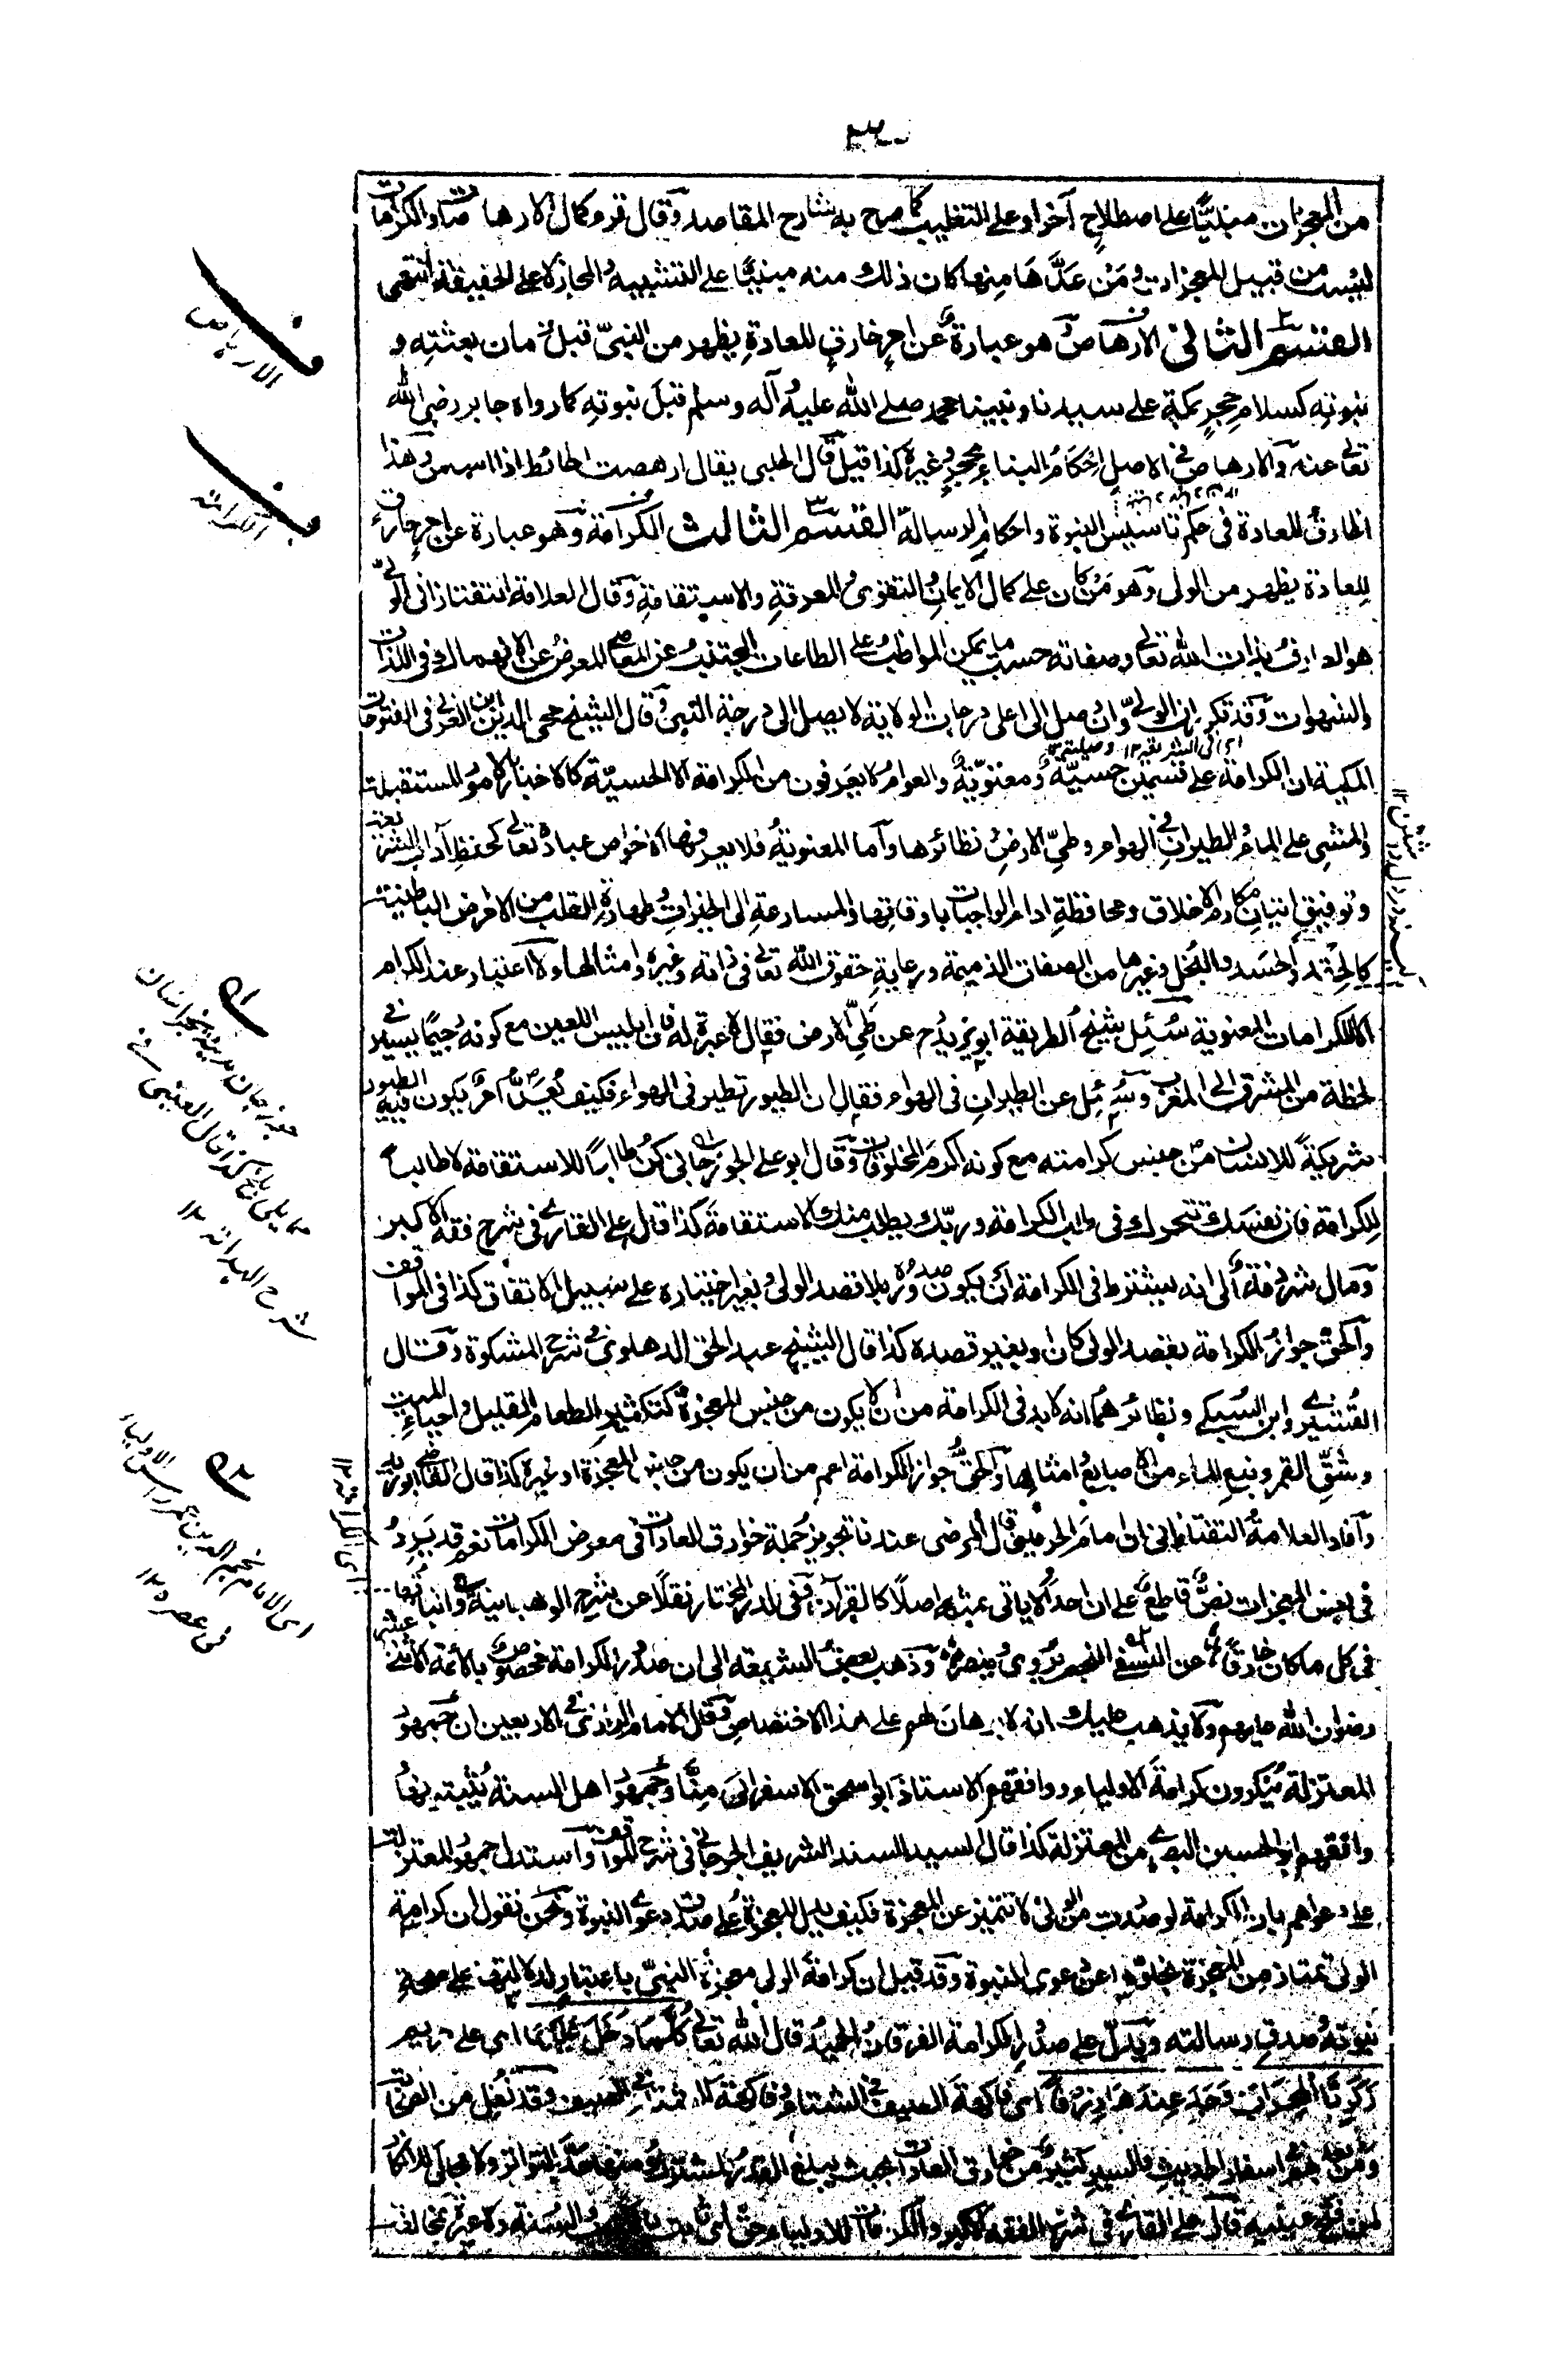 من المعجزات مبنيًّا على اصطلاح آخر او على التغليب كما صرح به شارح المقاصد وقال قره كمال الارهاصات والكرامات
ليست من قبيل المعجزات ومَنْ عَدَّهَا منها كان ذلك منه مبنيًّا على التشبيه والمجاز لا على الحقيقة انتهى
القسم الثانى الارهاص وهو عبارة عن امر خارق للعادة يظهر من النبىّ قبل زمان بعثته و
نبوته كسلام حجر بمكة على سيدنا ونبينا محمد صلى الله عليه وآله وسلم قبل نبوته كما رواه جابر رضى الله
تعالى عنه والارهاص فى الاصل احكام البناء بحجر وغيره كذا قيل قال الحلبى يقال ارهصت الحائط اذا اسسته وهذا
الخارق للعادة فى حكم تاسيس النبوة واحكام الرسالة القسم الثالث الكرامة وهو عبارة عن امر خارق
للعادة يظهر من الولى وهو مَنْ كان على كمال الايمان والتقوى والمعرفة والاستقامة وقال العلامة التفتازانى الولىّ
هو العارف بذات الله تعالى وصفاته حسب ما يمكن المواظب على الطاعات المجتنب عن المعاصى المعرض عن الانهماك فى اللذات
والشهوات وقد تقرر ان الولىّ وان وصل الى اعلى درجات الولاية لا يصل الى درجة النبى وقال الشيخ محى الدين ابن العربى فى الفتوحات
المكية ان الكرامة على قسمين حسيّة ومعنويّة والعوام لا يعرفون من الكرامة الا الحسيّة كالاخبار بالامور المستقبلة
والمشى على الماء والطيران فى الهواء وطىّ الارض ونظائرها واما المعنوية فلا يعرفها الا خواص عباده تعالى كحفظ آداب الشريعة
وتوفيق اتيان مكارم الاخلاق ومحافظة اداء الواجبات باوقاتها والمسارعة الى الخيرات وطهارة القلب من الامراض الباطنية
كالحقد والحسد والبخل وغيرها من الصفات الذميمة ورعاية حقوق الله تعالى فى ذاته وغيره وامثالها ولا اعتبار عند الكرام
الا للكرامات المعنوية سُئِل شيخ الطريقة ابو يزيد رح عن طىّ الارض فقال لا عبرة له فان ابليس اللعين مع كونه رجيمًا يسير فى
لحظة من المشرق الى المغرب وسُئِل عن الطيران فى الهواء فقال ان الطيور تطير فى الهواء فكيف يُعَدُّ امر يكون فيه الطيور
شريكة للانسان من جنس كرامته مع كونه اكرم المخلوقات وقال ابو على الجوزجانى كن طالبًا للاستقامة لا طالبًا
للكرامة فان نفسك تتحرك فى طلب الكرامة وربّك يطلب منك الاستقامة كذا قال على القارى فى شرح فقه الاكبر
ومال شرذمة الى انه يشترط فى الكرامة ان يكون صدوره بلا قصد الولى وبغير اختياره على سبيل الاتفاق كذا فى المواقف
والحق جواز الكرامة بقصد الولى كان او بغير قصده كذا قال الشيخ عبد الحق الدهلوى فى شرح المشكوة وقال
القُشَيرى وابن السبكى ونظائرهما انه لابد فى الكرامة من ان لا يكون من جنس المعجزة كتكثير الطعام القليل واحياء الميت
وشق القمر ونبع الماء من الاصابع وامثالها والحق جواز الكرامة اعم من ان يكون من جنس المعجزة او غيره كذا قال القاضى ابو زيد
وافاد العلامة التفتازانى ان امام الحرمين قال المرضى عندنا تجويز جملة خوارق العادات فى معرض الكرامات نعم قد يرد
فى بعض المعجزات نصّ قاطع على ان احدا لا ياتى بمثله اصلًا كالقرآن ففى الدر المختار نقلًا عن شرح الوهبانية واثباتها
فى كل ما كان خارقًا عن النسفى النجم يُروى وينصر وذهب بعض الشريعة الى ان صدور الكرامة مخصوص بالائمة الاثنى عشر
رضوان الله عليهم ولا يذهب عليك انه لا برهان لهم على هذا الاختصاص وقال الامام الرازى فى الاربعين ان جمهور
المعتزلة ينكرون كرامة الاولياء ووافقهم الاستاذ ابو اسحق الاسفرائنى مِنَّا وجمهور اهل السنة يُثبتونها
وافقهم ابو الحسين البصرى من المعتزلة كذا قال السيد السند الشريف الجرجانى فى شرح المواقف واستدل جمهور المعتزلة
على دعواهم بان الكرامة لو صدرت من الولى لا تتميز عن المعجزة فكيف يدل المعجزة على صدق دعوى النبوة ونحن نقول ان كرامة
الولى تمتاز من المعجزة بخلوّها عن دعوى النبوة وقد قيل ان كرامة الولى معجزة النبىّ باعتبار دلالتها على صحة
نبوته وصدق رسالته ويدلّ على صدور الكرامة الفرقان المجيد قال الله تعالى كُلَّمَا دَخَلَ عَلَيْهَا اى على مريم
زَكَرِيَّا الْمِحْرَابَ وَجَدَ عِنْدَهَا رِزْقًا اى فاكهة الصيف فى الشتاء وفاكهة الشتاء فى الصيف وقد نُقل من الصحابة
ومن بعدهم فى اسفار الحديث والسير كثير من خوارق العادات بحيث يبلغ القدر المشترك منها حدّ التواتر ولا مجال للانكار
قال على القارى فى شرح الفقه الاكبر والكرامات للاولياء حق اى ثابت بالكتاب والسنة ولا عبرة بمخالفة
ف الارهاص
ف الكرامة
شرح الهداية ١٢
اى الكرامة ١٢